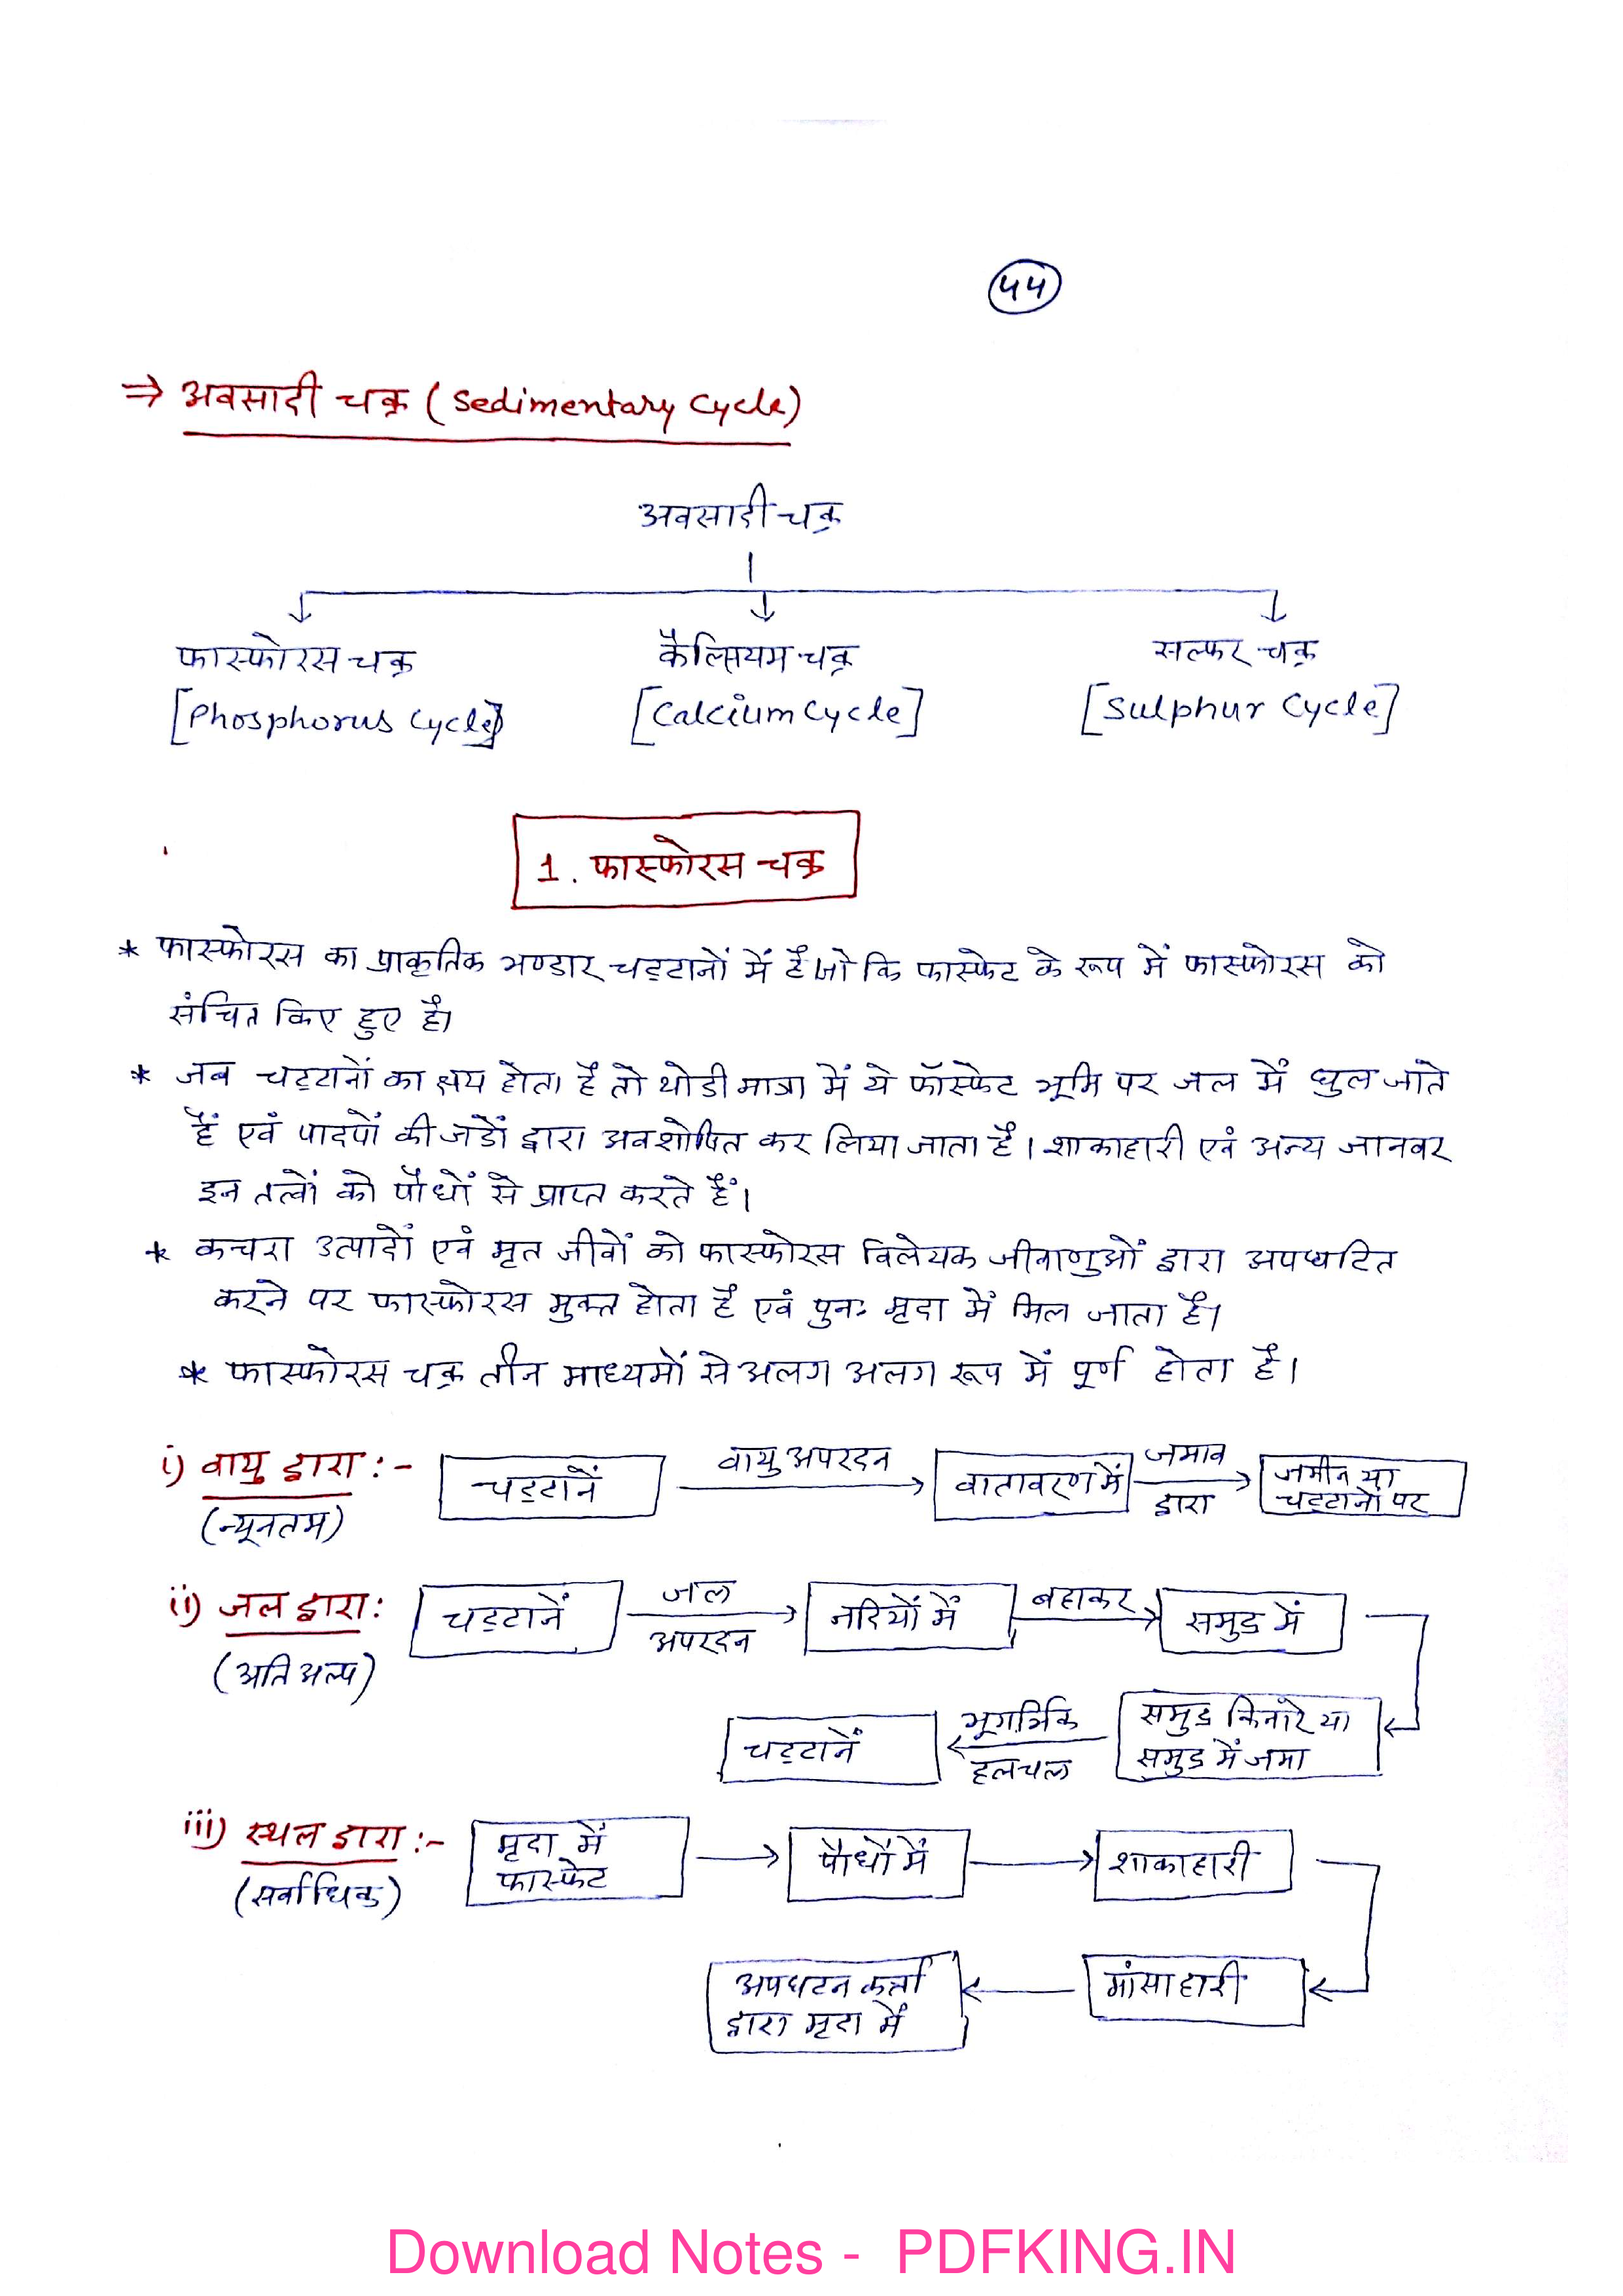 44
⇒ अवसादी चक्र (Sedimentary Cycle)
अवसादी चक्र
फास्फोरस चक्र कैल्सियम चक्र सल्फर चक्र
[Phosphorus Cycle] [Calcium Cycle] [Sulphur Cycle]
1. फास्फोरस चक्र
* फास्फोरस का प्राकृतिक भण्डार चट्टानों में है जो कि फास्फेट के रूप में फास्फोरस को
संचित किए हुए है।
* जब चट्टानों का क्षय होता है तो थोडी मात्रा में ये फॉस्फेट भूमि पर जल में घुल जाते
हैं एवं पादपों की जडों द्वारा अवशोषित कर लिया जाता है। शाकाहारी एवं अन्य जानवर
इन तत्वों को पौधों से प्राप्त करते हैं।
* कचरा उत्पादों एवं मृत जीवों को फास्फोरस विलेयक जीवाणुओं द्वारा अपघटित
करने पर फास्फोरस मुक्त होता है एवं पुनः मृदा में मिल जाता है।
* फास्फोरस चक्र तीन माध्यमों से अलग अलग रूप में पूर्ण होता है।
i) वायु द्वारा :- चट्टानें वायु अपरदन वातावरण में जमाव द्वारा जमीन या चट्टानों पर
(न्यूनतम)
ii) जल द्वारा: चट्टानें जल अपरदन नदियों में बहाकर समुद्र में
(अति अल्प)
चट्टानें भूगर्भिक हलचल समुद्र किनारे या समुद्र में जमा
iii) स्थल द्वारा :- मृदा में फास्फेट पौधों में शाकाहारी
(सर्वाधिक)
अपघटन कर्त्ता द्वारा मृदा में मांसाहारी
Download Notes - PDFKING.IN